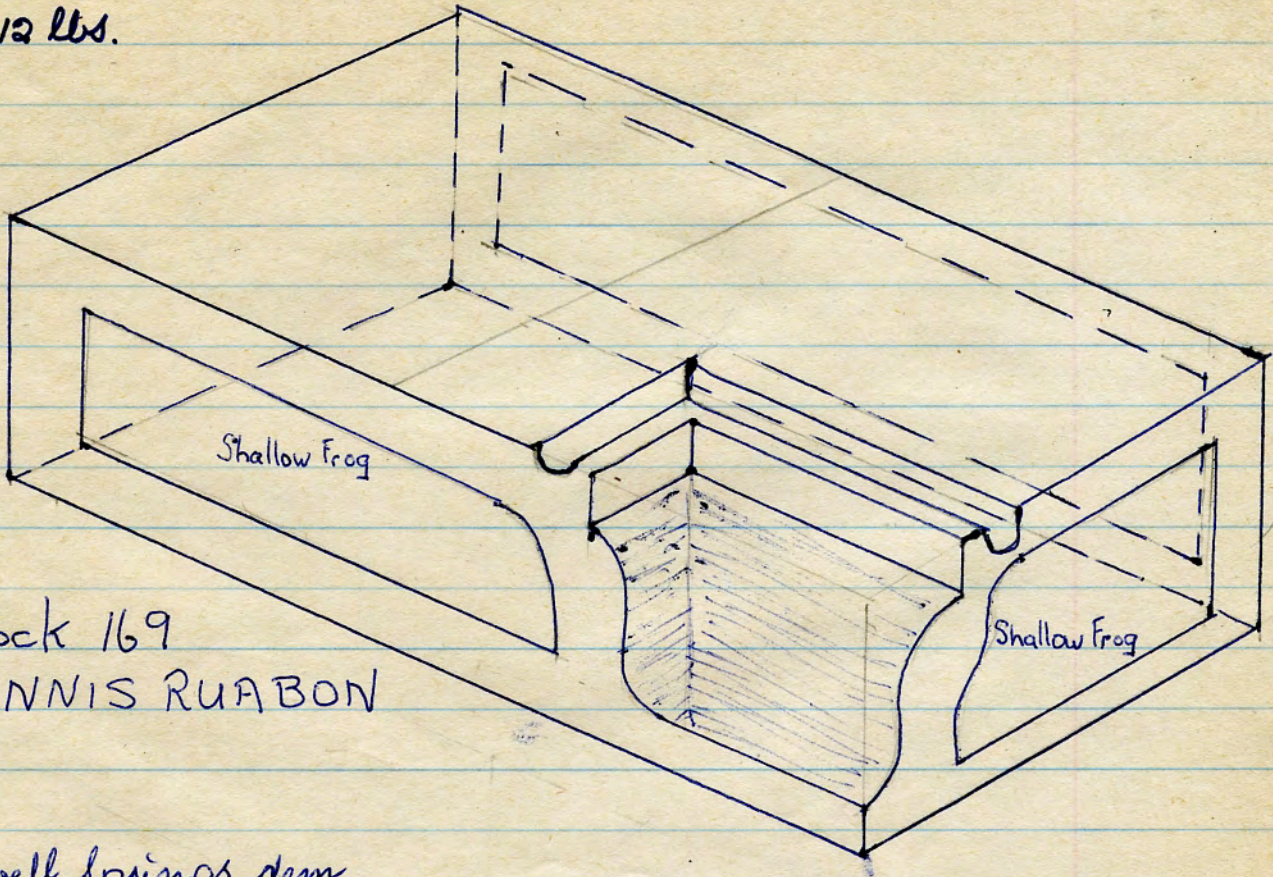 12 lbs.
Shallow Frog
Shallow Frog
ock 169
NNIS RUABON
Springs